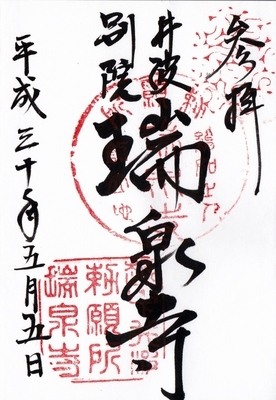 参拝
井波
別院
瑞泉寺
平成三十年五月五日
勅願所
瑞泉寺